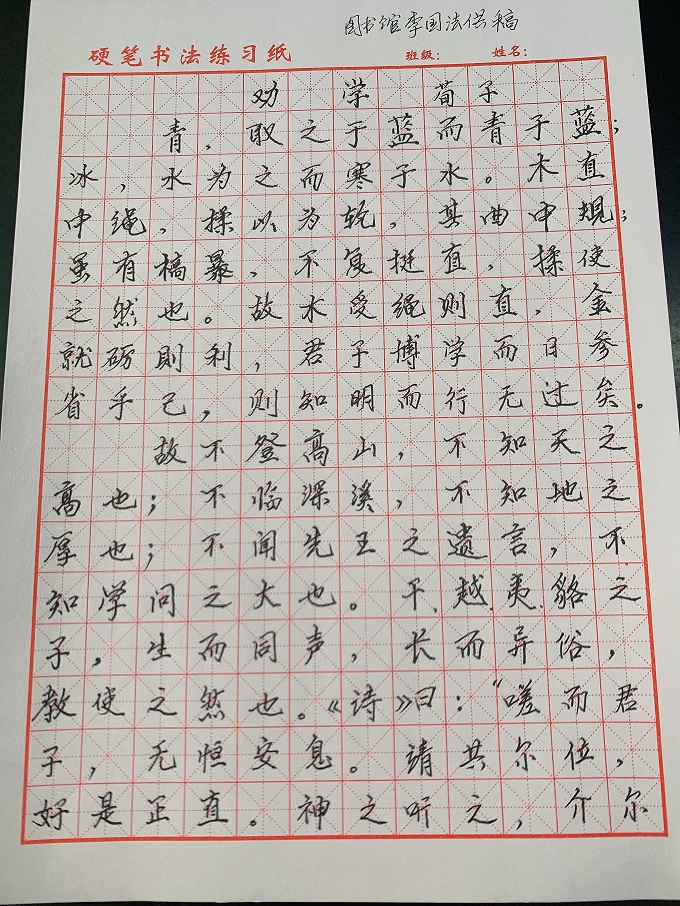 图书馆李国法供稿
硬笔书法练习纸 班级： 姓名：
劝 学 荀子
青，取之于蓝而青于蓝；
冰，水为之而寒于水。木直
中绳，揉以为轮，其曲中规；
虽有槁暴，不复挺直，揉使
之然也。故木受绳则直，金
就砺則利，君子博学而日参
省乎己，则知明而行无过矣。
故不登高山，不知天之
高也；不临深溪，不知地之
厚也；不闻先王之遗言，不
知学问之大也。干、越、夷、貉之
子，生而同声，长而异俗，
教使之然也。《诗》曰：“嗟而君
子，无恒安息。请共尔位，
好是正直。神之听之，介尔